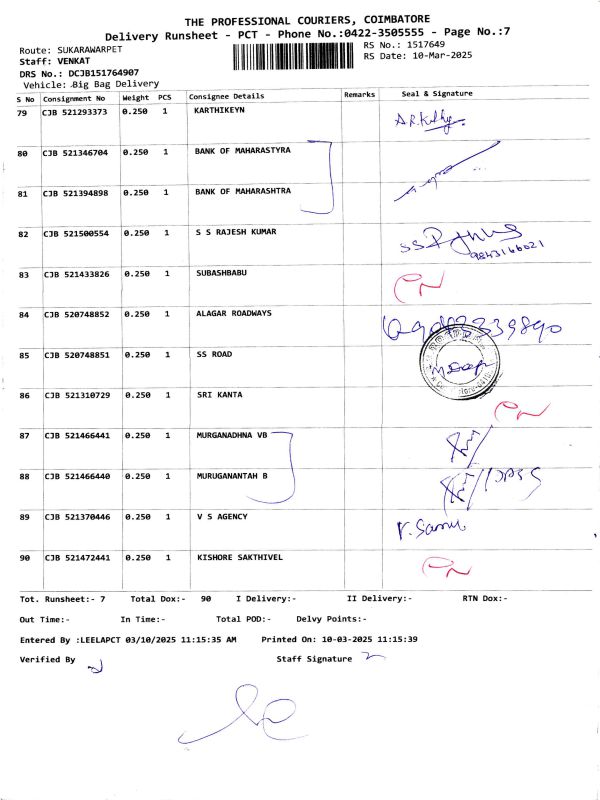 THE PROFESSIONAL COURIERS, COIMBATORE
Delivery Runsheet - PCT - Phone No.:0422-3505555 - Page No.:7
Route: SUKARAWARPET
RS No.: 1517649
Staff: VENKAT
RS Date: 10-Mar-2025
DRS No.: DCJB151764907
Vehicle: Big Bag Delivery
S No Consignment No Weight PCS Consignee Details Remarks Seal & Signature
79 CJB 521293373 0.250 1 KARTHIKEYN
80 CJB 521346704 0.250 1 BANK OF MAHARASTYRA
81 CJB 521394898 0.250 1 BANK OF MAHARASHTRA
82 CJB 521500554 0.250 1 S S RAJESH KUMAR
9843166021
83 CJB 521433826 0.250 1 SUBASHBABU
84 CJB 520748852 0.250 1 ALAGAR ROADWAYS
85 CJB 520748851 0.250 1 SS ROAD
86 CJB 521310729 0.250 1 SRI KANTA
87 CJB 521466441 0.250 1 MURGANADHNA VB
88 CJB 521466440 0.250 1 MURUGANANTAH B
89 CJB 521370446 0.250 1 V S AGENCY
90 CJB 521472441 0.250 1 KISHORE SAKTHIVEL
Tot. Runsheet:- 7 Total Dox:- 90 I Delivery:- II Delivery:- RTN Dox:-
Out Time:- In Time:- Total POD:- Delvy Points:-
Entered By :LEELAPCT 03/10/2025 11:15:35 AM Printed On: 10-03-2025 11:15:39
Verified By Staff Signature